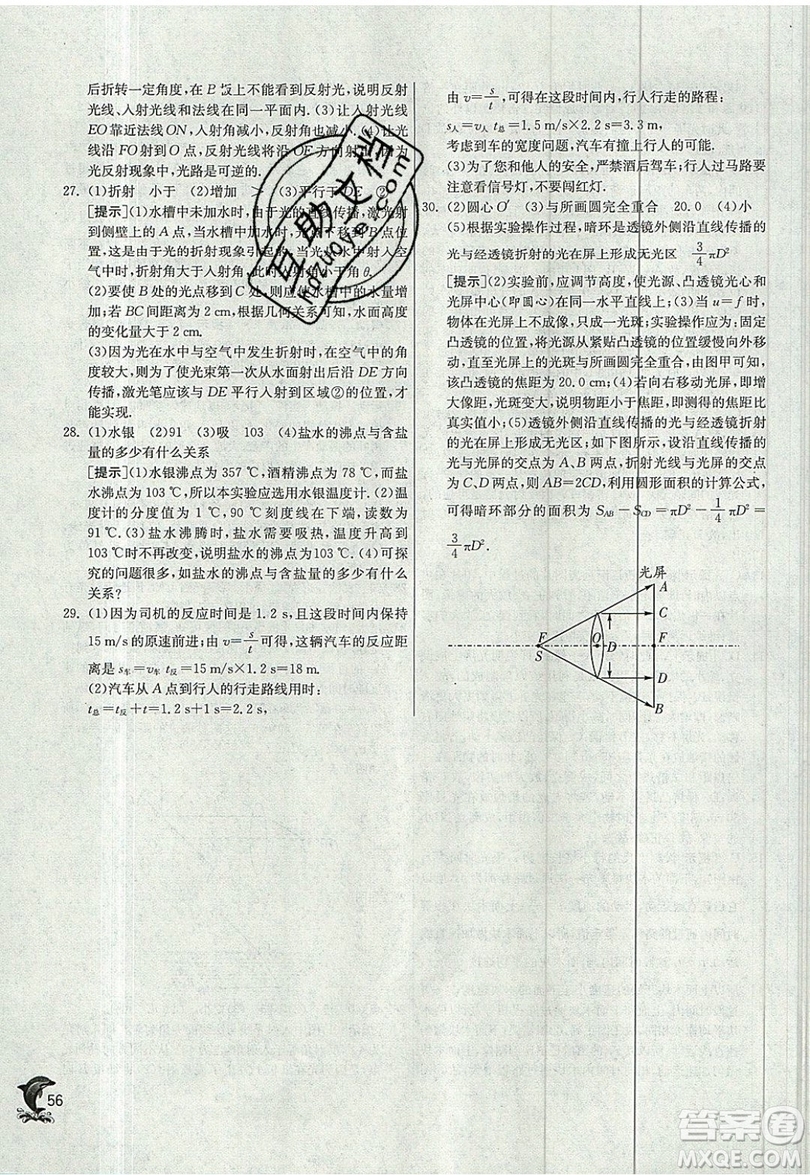 后折转一定角度,在 B 板上不能看到反射光,说明反射
光线、入射光线和法线在同一平面内. (3)让入射光线
EO靠近法线ON,入射角减小,反射角减小. (4)让光
线从FO射到O点,反射光线沿OE方向射出,因为
光反射现象中,光路是可逆的.
27. (1)折射 小于 (2)增加 > (3)平行于 DE ②
[提示](1)水槽中未加水时,由于光的直线传播,激光射
到侧壁上的 A 点,当水槽中加水时,光斑移到 B 点的位
置,这是由于光的折射现象引起的,当光从水中射入空
气中时,折射角大于入射角,所以入射角小于角 θ.
(2)要使 B 处的光点移到 C 处,则应使水槽中的水量增
加;若 BC 间距离为 2 cm,根据几何关系可知,水面高度
的变化量大于 2 cm.
(3)因为光在水中与空气中发生折射时,光在空气中的角
度较大,则为了使光束第一次从水面射出后沿水平方向
传播,激光笔应该与 DE 平行入射到区域②的位置,才
能实现.
28. (1)水银 (2)91 (3)吸 103 (4)盐水的沸点与含盐
量的多少有什么关系
[提示](1)水银沸点为 357 ℃,酒精沸点为 78 ℃,而盐水
沸点为 103 ℃,所以本实验应选用水银温度计. (2)温
度计的分度值为 1 ℃,90 ℃刻度线在下边,读数为
91 ℃. (3)盐水沸腾时,虽然需要吸热,温度升高到
103 ℃时不再改变,说明盐水的沸点为 103 ℃. (4)可探
究的问题很多,如盐水的沸点与含盐量的多少有什么
关系?
29. (1)因为司机的反应时间是 1.2 s,且这段时间内保持
15 m/s 的原速前进;由 v=s/t 可得,这辆汽车的反应距
离是 s车=v车 t反=15 m/s×1.2 s=18 m.
(2)汽车从 A 点到行人的行走路线用时:
t总=t反+t=1.2 s+1 s=2.2 s,
由 v=s/t,可得在这段时间内,行人行走的路程:
s人=v人 t总=1.5 m/s×2.2 s=3.3 m,
考虑到车的宽度问题,汽车有撞上行人的可能.
(3)为了您和他人的安全,严禁酒后驾车;行人过马路要
注意看信号灯,不要闯红灯.
30. (2)圆心 O′ (3)与所画圆完全重合 20.0 (4)小
(5)根据实验操作可得:暗环是透镜外侧沿直线传播的
光与透镜折射的光在光屏上形成无光区 3/4 πD²
[提示](2)实验前,应调节高度,使光源、凸透镜光心和光
屏中心(即圆心)在同一水平直线上;(3)当 u=f 时,
物体在光屏上不成像,只成一光斑,实验操作应为:固定
凸透镜的位置,将光屏从紧贴凸透镜位置缓慢向外移
动,直至光屏上的光斑与所画圆完全重合,由图甲可得,
该凸透镜的焦距为 20.0 cm;(4)若向右移动光屏,即增
大像距,光斑变大,说明物距小于焦距,即测量的焦距比
真实值小;(5)根据题意,透镜外侧沿直线传播的光与透
镜折射的光在光屏上形成如图光路,设沿直线传播的
光与光屏的交点为 A、B 两点,折射光线与光屏的交点
为 C、D 两点,则 AB=2CD,利用圆形面积的计算公式,
可得暗环部分的面积为 S_AB-S_CD=πD²-1/4 πD²=
3/4 πD².
光屏
A
C
F
S
O
D
F
D
B
互助文档
hdzuoye.com
56
答案圈
MXQE.COM